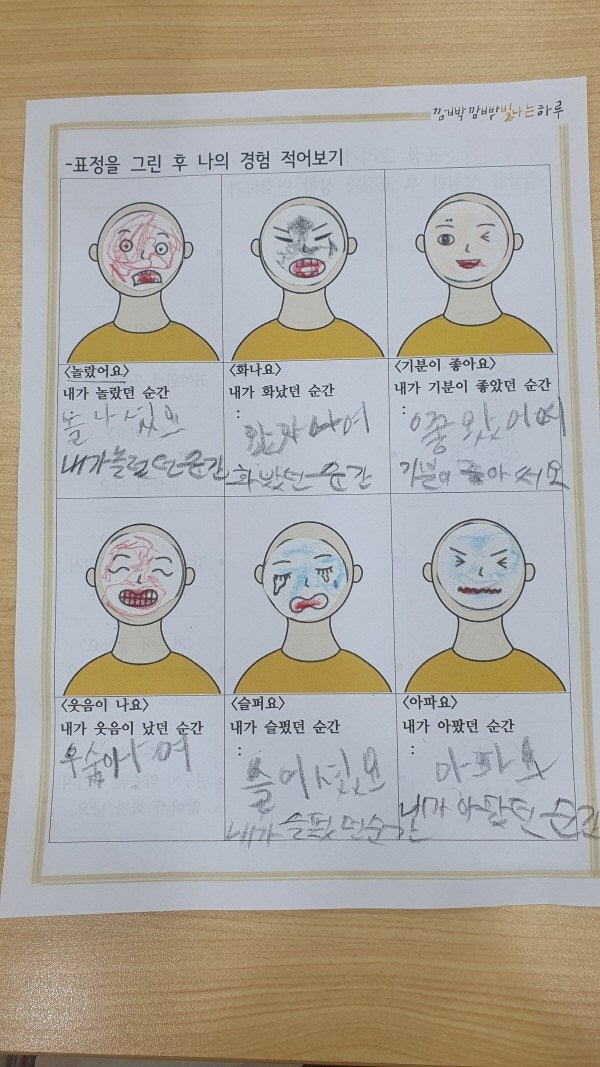 깜빡깜빡빛나는하루
-표정을 그린 후 나의 경험 적어보기
<놀랐어요>
내가 놀랐던 순간
놀 나 섰 요
내가놀럿던순간
<화나요>
내가 화났던 순간
:
화났던순간
<기분이 좋아요>
내가 기분이 좋았던 순간
:
기분이 좋아서요
<웃음이 나요>
내가 웃음이 났던 순간
우숩아 여
<슬퍼요>
내가 슬펐던 순간
:
내가 슬펐던순간
<아파요>
내가 아팠던 순간
:
아파요
내가 아팠던 순간